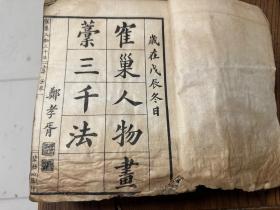 歲在戊辰冬日
寉巢人物畫
藁三千法
鄭孝胥